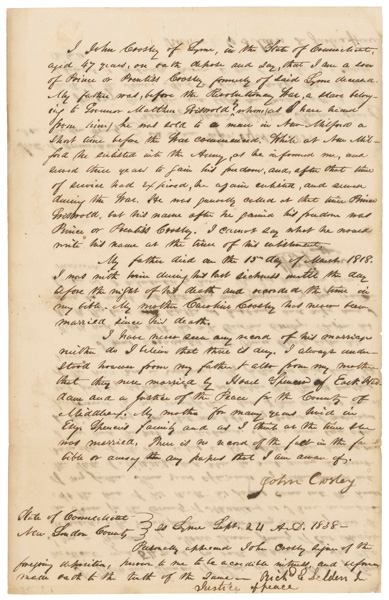 I John Crosley of Lyme, in the State of Connecticut,
aged 47 years, on oath depose and say, that I am a son
of Prince or Prentiss Crosley formerly of said Lyme deceased.
My father was, before the Revolutionary War, a slave belong-
ing to Governor Matthew Griswold, (as I have heard
from him) he was sold to a man in New Milford a
short time before the War commenced. While at New Mil-
ford he enlisted into the Army, as he informed me, and
served three years to gain his freedom, and, after that time
of service had expired, he again enlisted, and served
during the War. He was generally called at that time Prince
Griswold, but his name after he gained his freedom was
Prince or Prentiss Crosley. I cannot say what he would
write his name at the time of his enlistment.
My father died on the 15th day of March 1818.
I was with him during his last sickness until the day
before the night of his death and recorded the time in
my bible. My mother Caroline Crosley has never been
married since his death.
I have never seen any record of his marriage
neither do I believe that there is any. I always under-
stood however from my father & also from my mother
that they were married by Israel Spencer of East Had
dam and a Justice of the Peace for the County of
Middlesex. My mother for many years lived in
Spencers family and as I think at the time she
was married, There is no record of the fact in the fa
bible or among any papers that I am aware of.
John Crosley
State of Connecticut
New London County } ss Lyme Sept. 24 A.D. 1838—
Personally appeared John Crosley signer of the
foregoing deposition, known to me to be a credible witness, and
made oath to the truth of the same— Rich E Selden Jr
Justice of peace